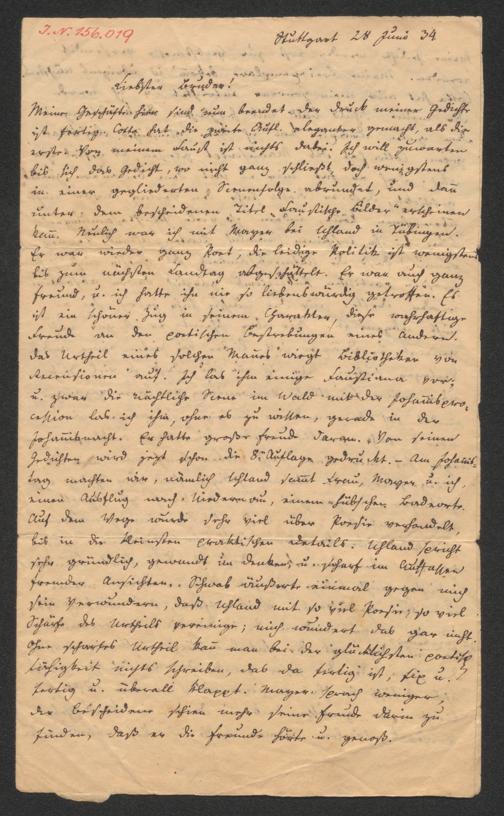 I.N. 156.019
Stuttgart 28 Juni 34
Liebster Bruder!
Meine Geschäfte hier sind nun beendet. der Druck meiner Gedichte
ist fertig. Cotta hat die zweite Aufl. eleganter gemacht, als die
erste. Von meinem Faust ist nichts dabei. Ich will zuwarten
bis sich das Gedicht, wo nicht ganz schließt, doch wenigstens
in einer gegliederten Scenenfolge abrundet, und dann
unter dem bescheidenen Titel „Faustische Bilder" erscheinen
kann. Neulich war ich mit Mayer bei Uhland in Tübingen.
Er war wieder ganz Poet, die leidige Politik ist wenigstens
bis zum nächsten Landtag abgeschüttelt. Er war auch ganz
Freund, u. ich hatte ihn nie so liebenswürdig getroffen. Es
ist ein schöner Zug in seinem Charakter, diese wahrhaftige
Freude an den poetischen Bestrebungen eines Anderen.
das Urtheil eines solchen Mannes wiegt Bibliotheken von
Recensionen auf. Ich las ihm einige Faustiana vor,
u. zwar die nächtliche Scene im Wald mit der Johannispro-
cession las ich ihm, ohne es zu wissen, gerade in der
Johannisnacht. Er hatte große Freude daran. Von seinen
Gedichten wird jezt schon die 8. Auflage gedruckt. – Am Johannis-
tag machten wir, nämlich Uhland sammt Frau, Mayer u. ich,
einen Ausflug nach Niedernau, einem hübschen Badeorte.
Auf dem Wege wurde sehr viel über Poesie verhandelt,
bis in die kleinsten praktischen details. Uhland spricht
sehr gründlich, gewandt im Denken, u. scharf im Auffassen
fremder Ansichten. Schwab äußerte einmal gegen mich
sein Verwundern, daß Uhland mit so viel Poesie, so viel
Schärfe des Urtheils vereinige; mich wundert das gar nicht.
Ohne scharfes Urtheil kann man bei der glücklichsten poetisch
Fähigkeit nichts schreiben, das da fertig ist, fix u.
fertig u. überall klappt. Mayer sprach weniger,
der bescheidene schien mehr seine Freude darin zu
finden, daß er die Freunde hörte u. genoß.